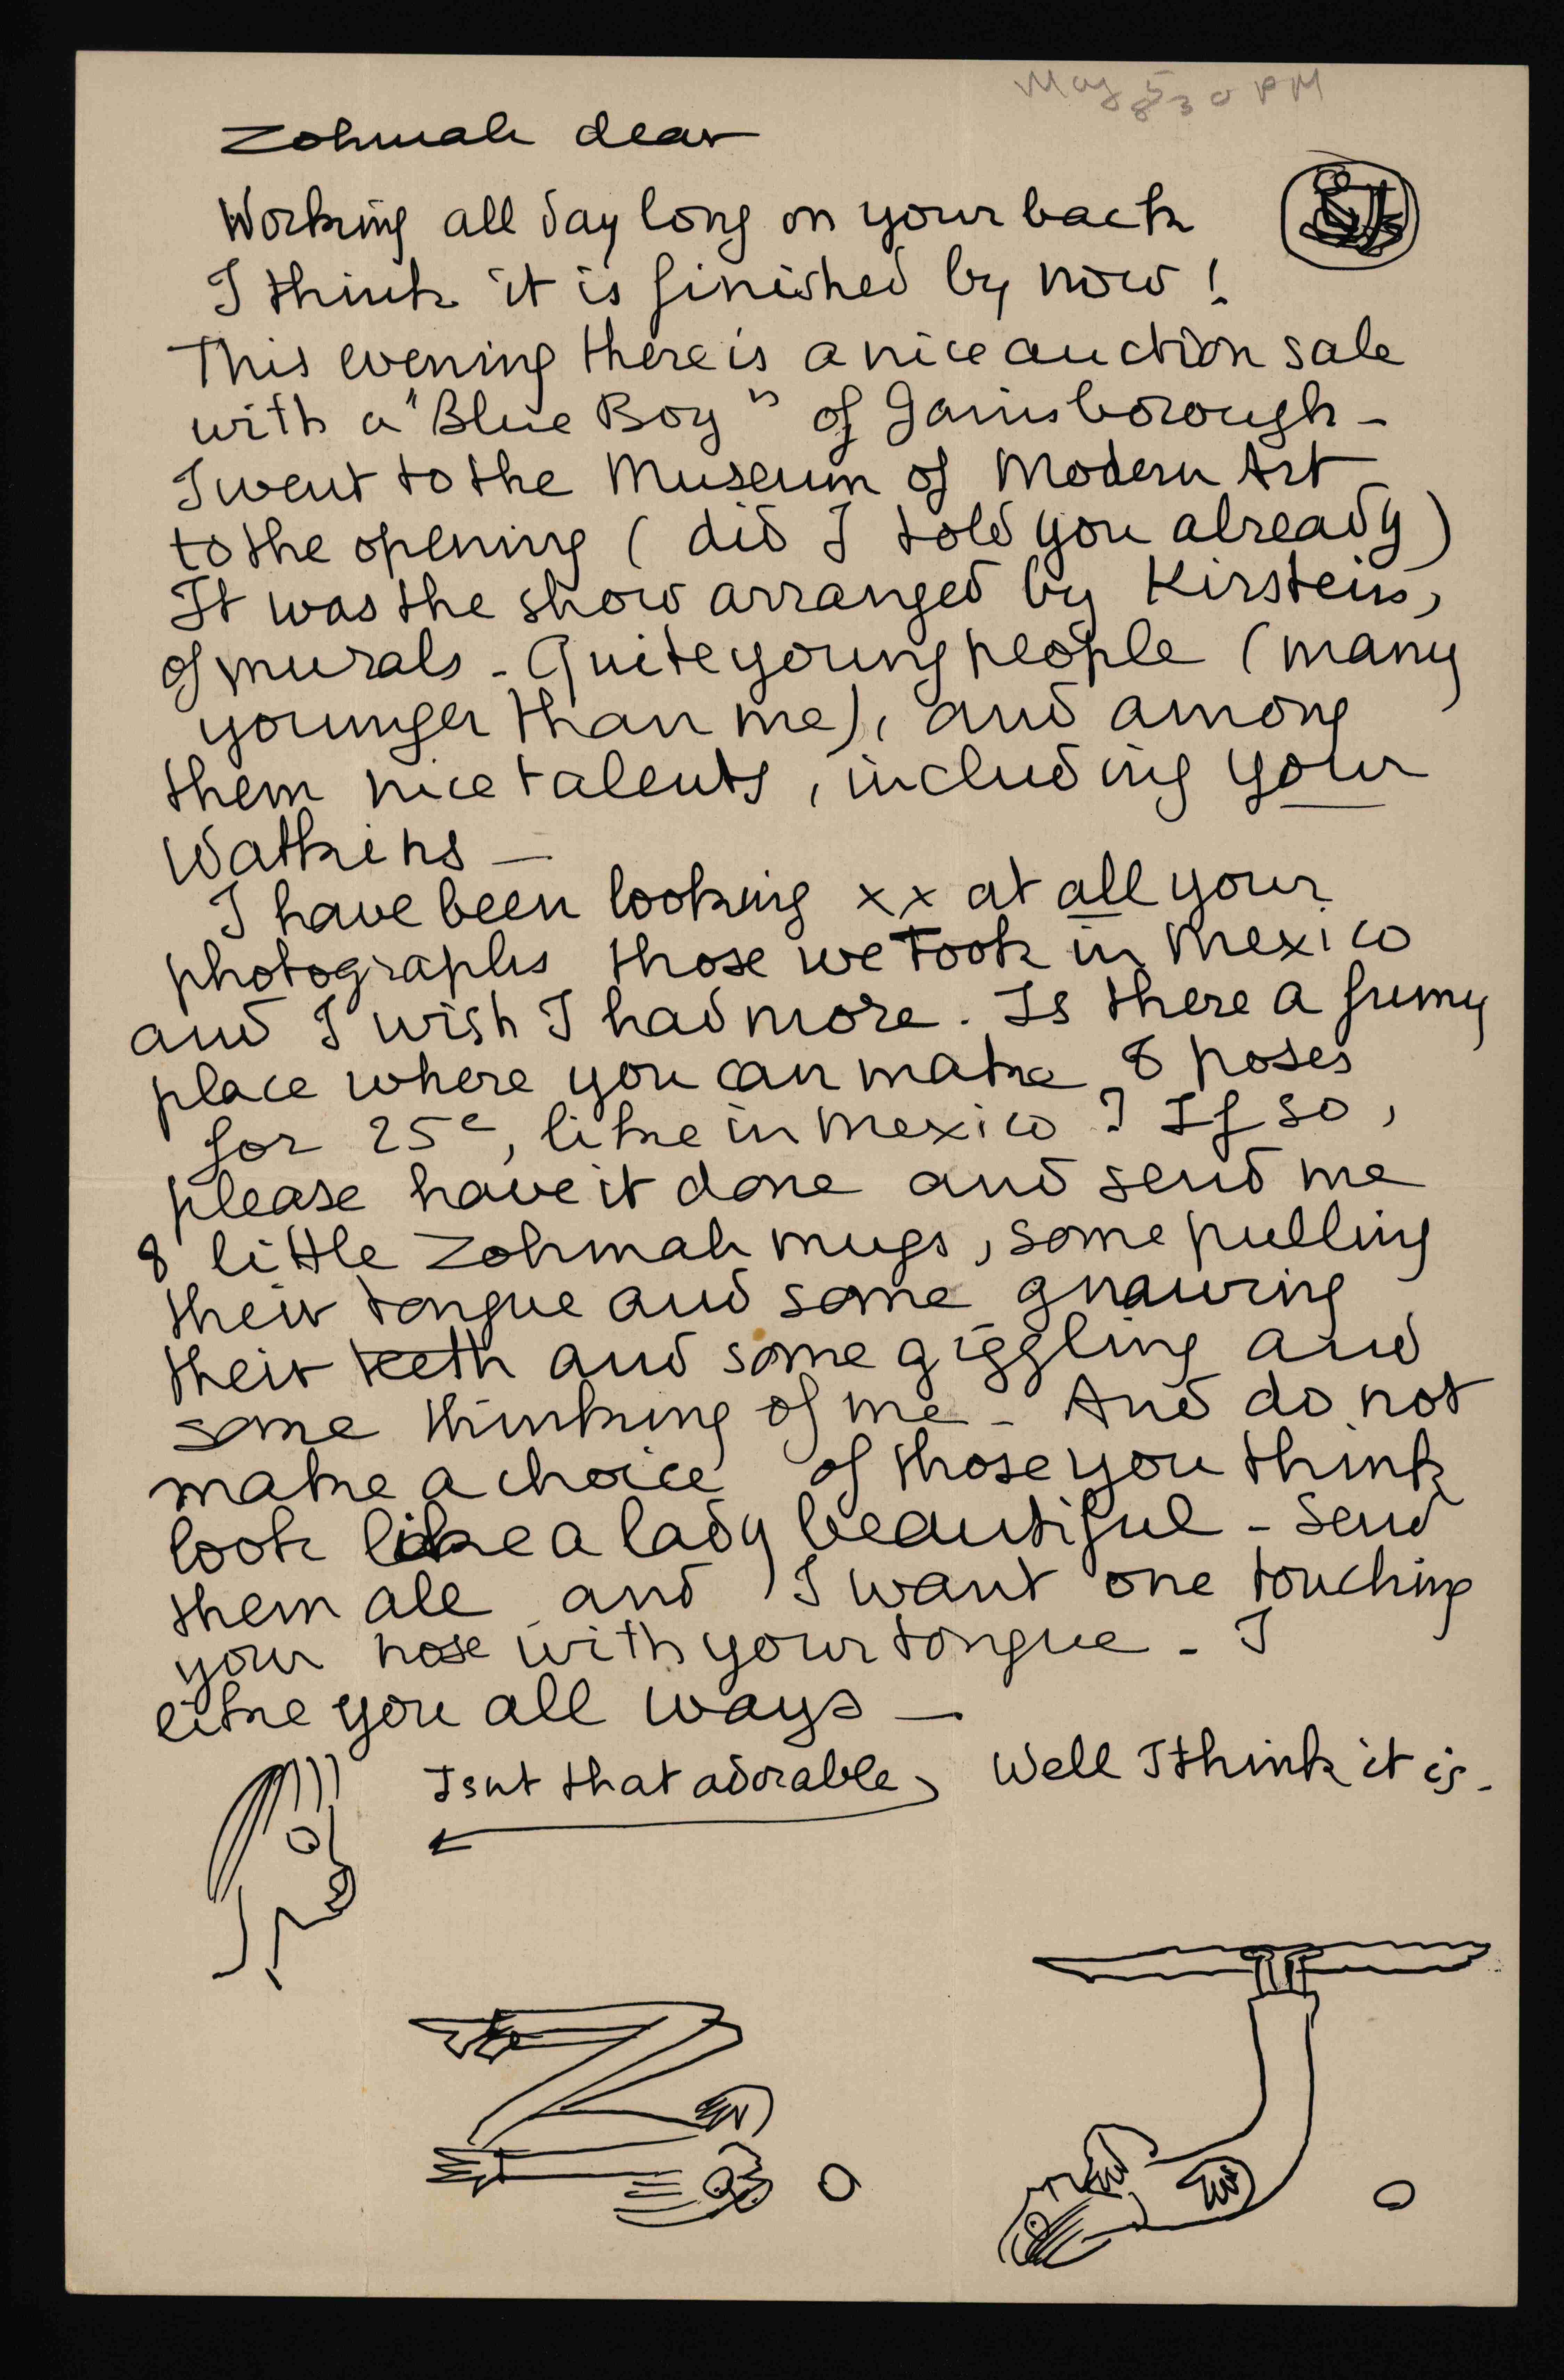 May 5 830 PM
Zohmah dear
Working all day long on your back
I think it is finished by now!
This evening there is a nice auction sale
with a "Blue Boy" of Gainsborough -
I went to the Museum of Modern Art
to the opening (did I told you already)
It was the show arranged by Kirstein,
of murals - Quite young people (many
younger than me), and among
them nice talents, including your
Watkins -
I have been looking xx at all your
photographs those we took in Mexico
and I wish I had more. Is there a funny
place where you can make 8 poses
for 25c, like in Mexico? If so,
please have it done and send me
8 little Zohmah mugs, some pulling
their tongue and some gnawing
their teeth and some giggling and
some thinking of me - And do not
make a choice of those you think
look like a lady beautiful - Send
them all and I want one touching
your nose with your tongue - I
like you all ways -
Isnt that adorable, Well I think it is -